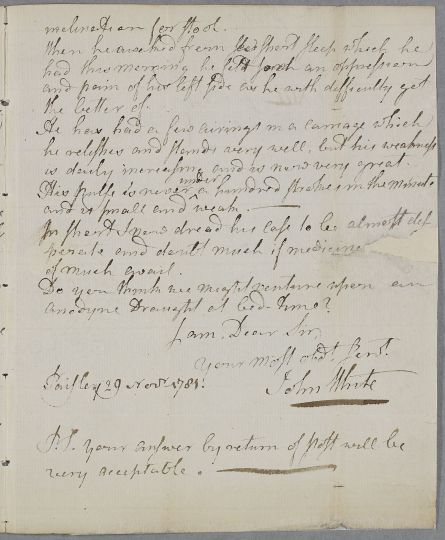 inclination for stool.
When he awaked from his short sleep which he
had this morning he felt such an oppression
and pain of his left side as he with difficulty got
the better of.
He has had a few airings in a carriage which
he relishes and stands very well, but his weakness
is dayly increasing and is now very great.
His pulse is never under a hundred strokes in the minute
and is small and weak
In short I now dread his case to be almost des
perate and doubt much if medicine
of much avail.
Do you think we might venture upon an
anodyne Draught at bed-time?
I am, Dear Sir,
your most obdt. Servt.
Paisley 29 Novr. 1781. John White
P.S. your answer by return of Post will be
very acceptable.